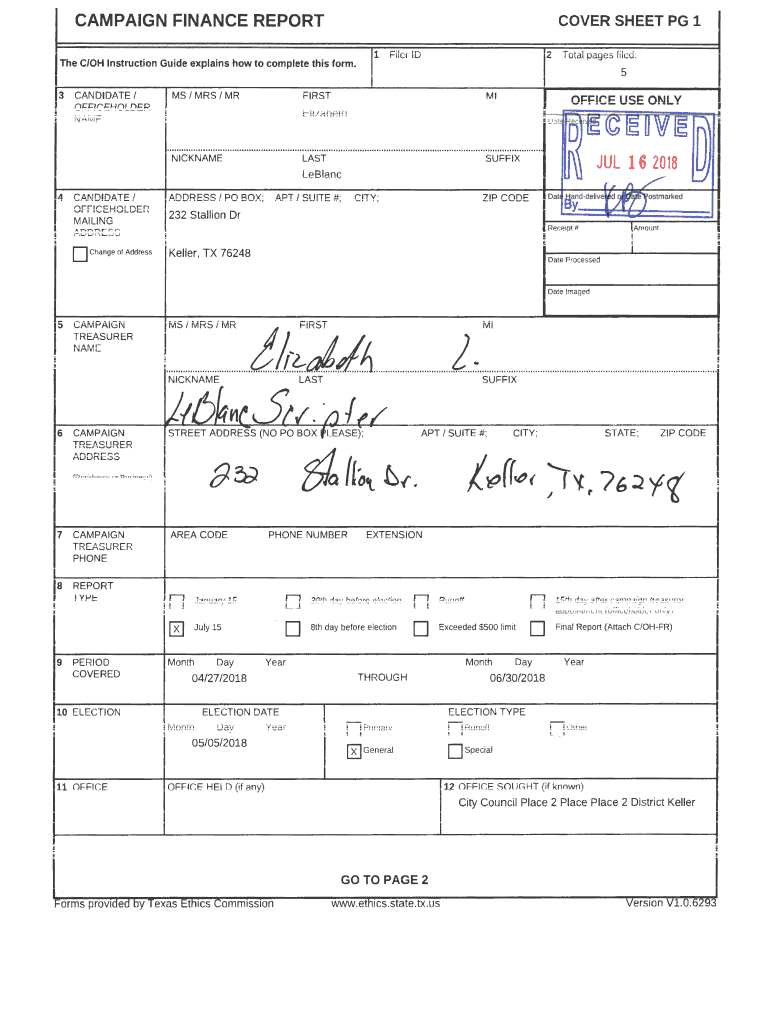 CAMPAIGN FINANCE REPORT COVER SHEET PG 1
The C/OH Instruction Guide explains how to complete this form. 1 Filer ID 2 Total pages filed:
5
3 CANDIDATE / OFFICEHOLDER NAME
MS / MRS / MR FIRST MI
Elizabeth
NICKNAME LAST SUFFIX
LeBlanc
OFFICE USE ONLY
Date Received
RECEIVED
JUL 16 2018
By
Date Hand-delivered or Date Postmarked
Receipt # Amount
Date Processed
Date Imaged
4 CANDIDATE / OFFICEHOLDER MAILING ADDRESS
Change of Address
ADDRESS / PO BOX; APT / SUITE #; CITY; ZIP CODE
232 Stallion Dr
Keller, TX 76248
5 CAMPAIGN TREASURER NAME
MS / MRS / MR FIRST MI
Elizabeth L.
NICKNAME LAST SUFFIX
LeBlanc Scripter
6 CAMPAIGN TREASURER ADDRESS
(Residence or Business)
STREET ADDRESS (NO PO BOX PLEASE); APT / SUITE #; CITY; STATE; ZIP CODE
232 Stallion Dr. Keller, TX, 76248
7 CAMPAIGN TREASURER PHONE
AREA CODE PHONE NUMBER EXTENSION
8 REPORT TYPE
January 15 30th day before election Runoff 15th day after campaign treasurer appointment (officeholder only)
X July 15 8th day before election Exceeded $500 limit Final Report (Attach C/OH-FR)
9 PERIOD COVERED
Month Day Year Month Day Year
04/27/2018 THROUGH 06/30/2018
10 ELECTION
ELECTION DATE ELECTION TYPE
Month Day Year Primary Runoff Other
05/05/2018
X General Special
11 OFFICE OFFICE HELD (if any) 12 OFFICE SOUGHT (if known)
City Council Place 2 Place Place 2 District Keller
GO TO PAGE 2
Forms provided by Texas Ethics Commission www.ethics.state.tx.us Version V1.0.6293